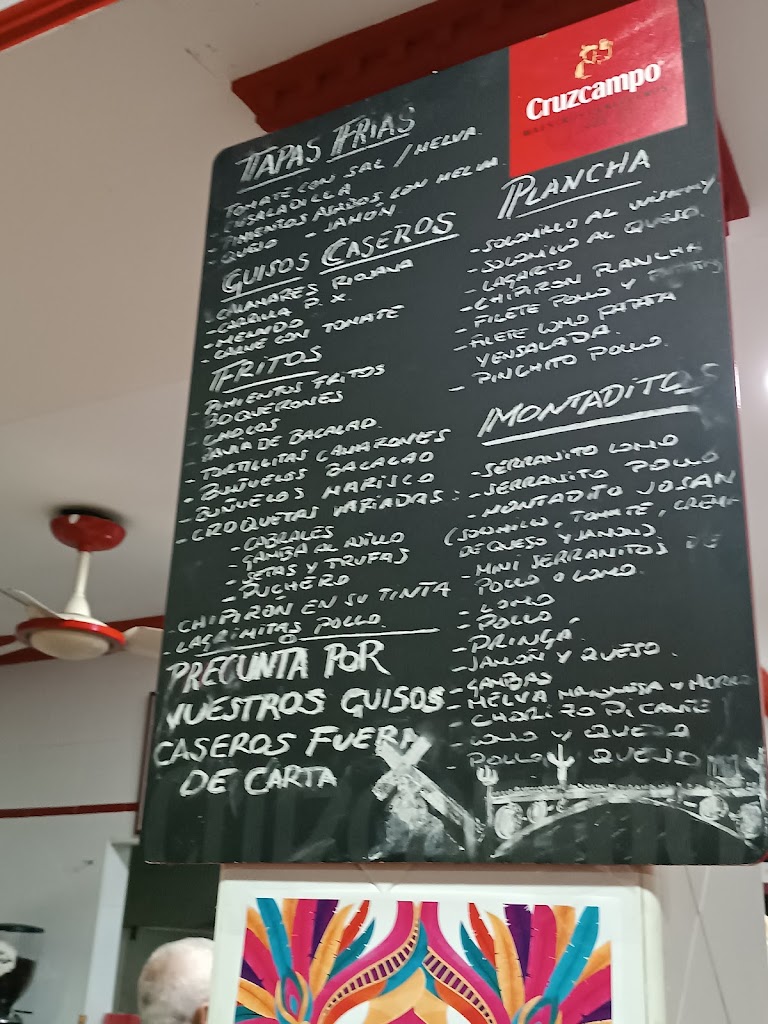 Cruzcampo
TAPAS FRIAS
TOMATE CON SAL / MELVA.
ENSALADILLA
- PIMIENTOS ASADOS CON MELVA.
- QUESO - JAMÓN
GUISOS CASEROS
- CALAMARES RIOJANA
- CARRILLA P.X.
- MENUDO
- CARNE CON TOMATE
FRITOS
- PIMIENTOS FRITOS
BOQUERONES
- CHOCOS
- PAVIA DE BACALAO.
- TORTILLITAS CAMARONES
- BUÑUELOS BACALAO
- BUÑUELOS MARISCO
- CROQUETAS VARIADAS:
- CABRALES
- GAMBA AL AJILLO
- SETAS Y TRUFAS
- PUCHERO
- CHIPIRON EN SU TINTA
- LAGRIMITAS POLLO.
PREGUNTA POR
NUESTROS GUISOS
CASEROS FUERA
DE CARTA
PLANCHA
- SOLOMILLO AL WISKHY
- SOLOMILLO AL QUESO.
- LAGARTO
- CHIPIRON PLANCHA
- FILETE POLLO Y
- FILETE LOMO PATATA
Y ENSALADA.
- PINCHITO POLLO.
MONTADITOS
- SERRANITO LOMO
- SERRANITO POLLO
- MONTADITO JOSAN
(SOLOMILLO, TOMATE, CREMA
DE QUESO Y JAMON).
- MINI SERRANITOS DE
POLLO O LOMO.
- LOMO
- POLLO
- PRINGA.
- JAMÓN Y QUESO.
- GAMBAS
- MELVA MAHONESA Y
- CHORIZO PICANTE
- LOMO Y QUESO
- POLLO Y QUESO